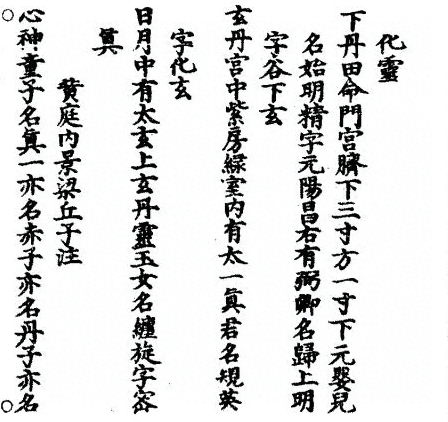 化靈
下丹田命門宮臍下三寸方一寸下元嬰兒
名始明精字元陽昌右有弼卿名歸上明
字谷下玄
玄丹宮中紫房綠室內有太一眞君名規英
字化玄
日月中有太玄上玄丹靈玉女名纏旋字密
眞
黃庭內景梁丘子注
○心神童子名眞一亦名赤子亦名丹子亦名○